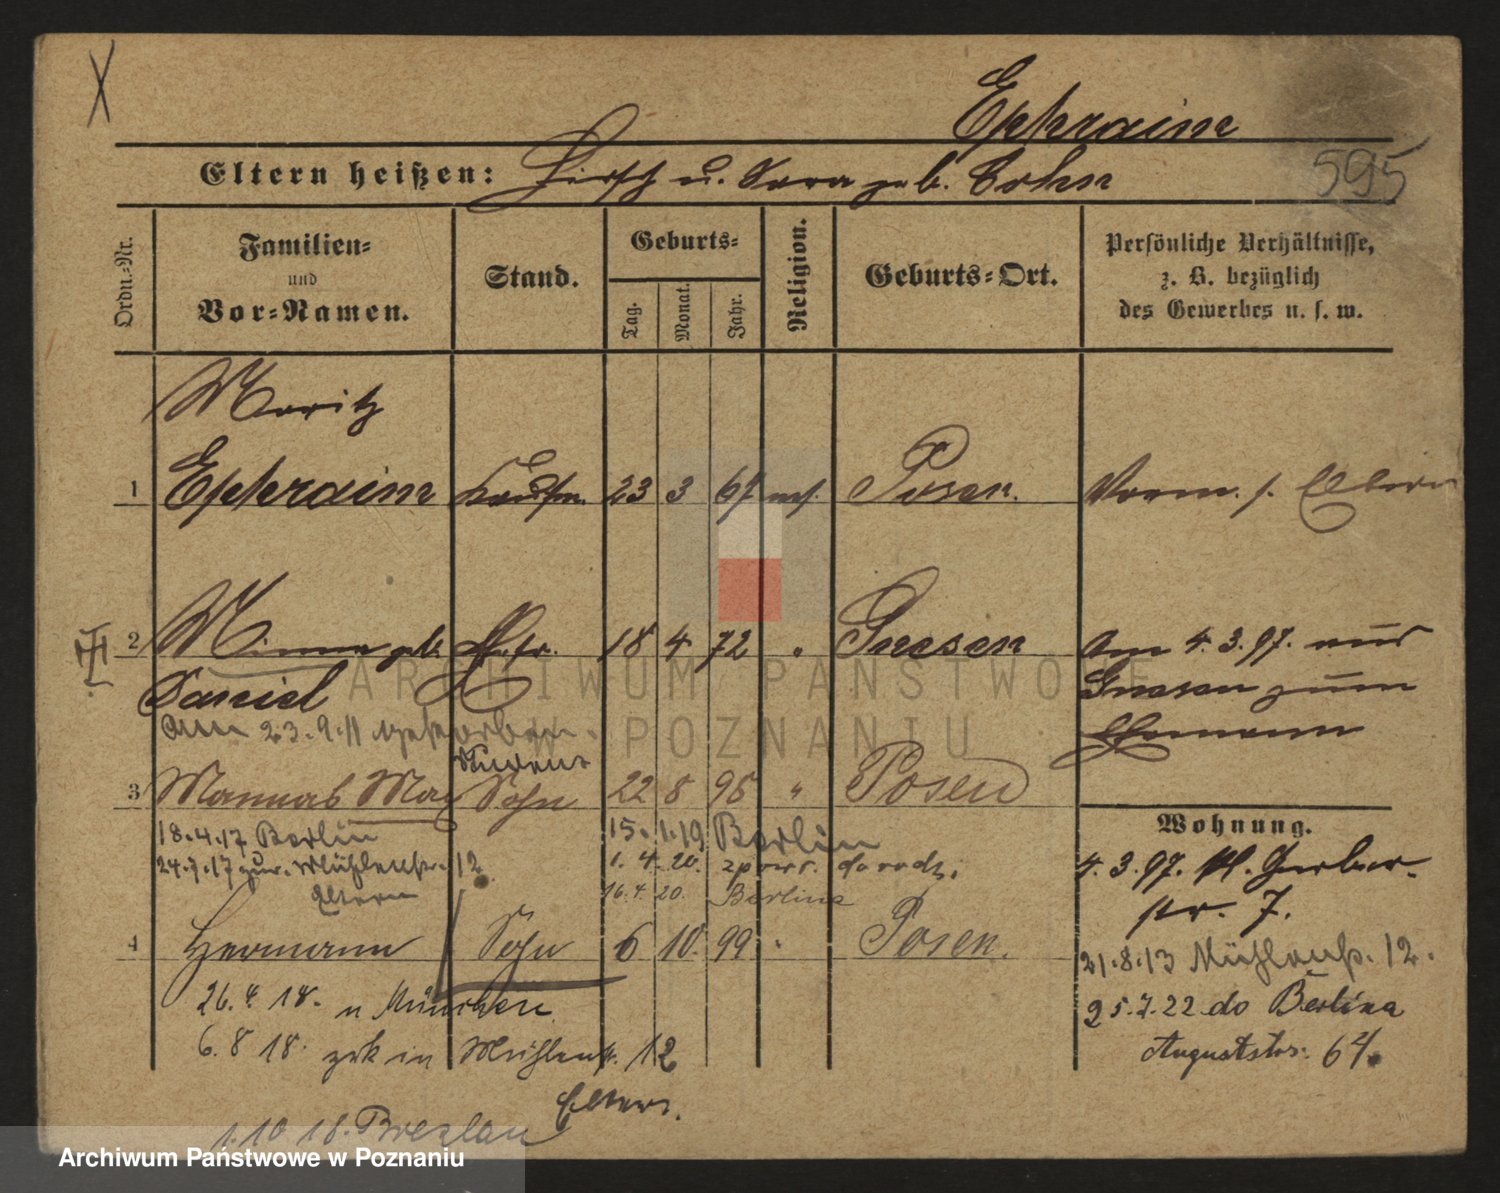 X
Ephraim
Eltern heißen: Hirsch u. Sara geb. Cohn
595
Ordn.-Nr.
Familien-
und
Vor-Namen.
Stand.
Geburts-
Tag.
Monat.
Jahr.
Religion.
Geburts-Ort.
Persönliche Verhältnisse,
z. B. bezüglich
des Gewerbes u. s. w.
Moritz
1 Ephraim Kaufm. 23 3 67 mos. Posen. Vorm. s. Eltern
2 Minna geb. Ehefr. 18 4 72 " Gnesen Am 4.3.97. aus
Daniel Gnesen zum
Am 23.9.11 gestorben. Ehemann
Student
3 Mannas Max Sohn 22 8 95 " Posen
18.4.17 Berlin 15.1.19 Berlin
24.7.17 zur. Mühlenstr. 12 1.4.20. zpowr. do rodz.
Eltern 16.4.20. Berlina
Wohnung.
4.3.97. Kl. Gerber-
str. 7.
4 Hermann Sohn 6 10. 99 " Posen.
21.8.13 Mühlenstr. 12.
26.4.18. n München
25.7.22 do Berlina
6.8 18. zrk in Mühlenstr. 12
Auguststr. 64.
Eltern.
1.10 18. Breslau
ARCHIWUM PAŃSTWOWE
W POZNANIU
Archiwum Państwowe w Poznaniu